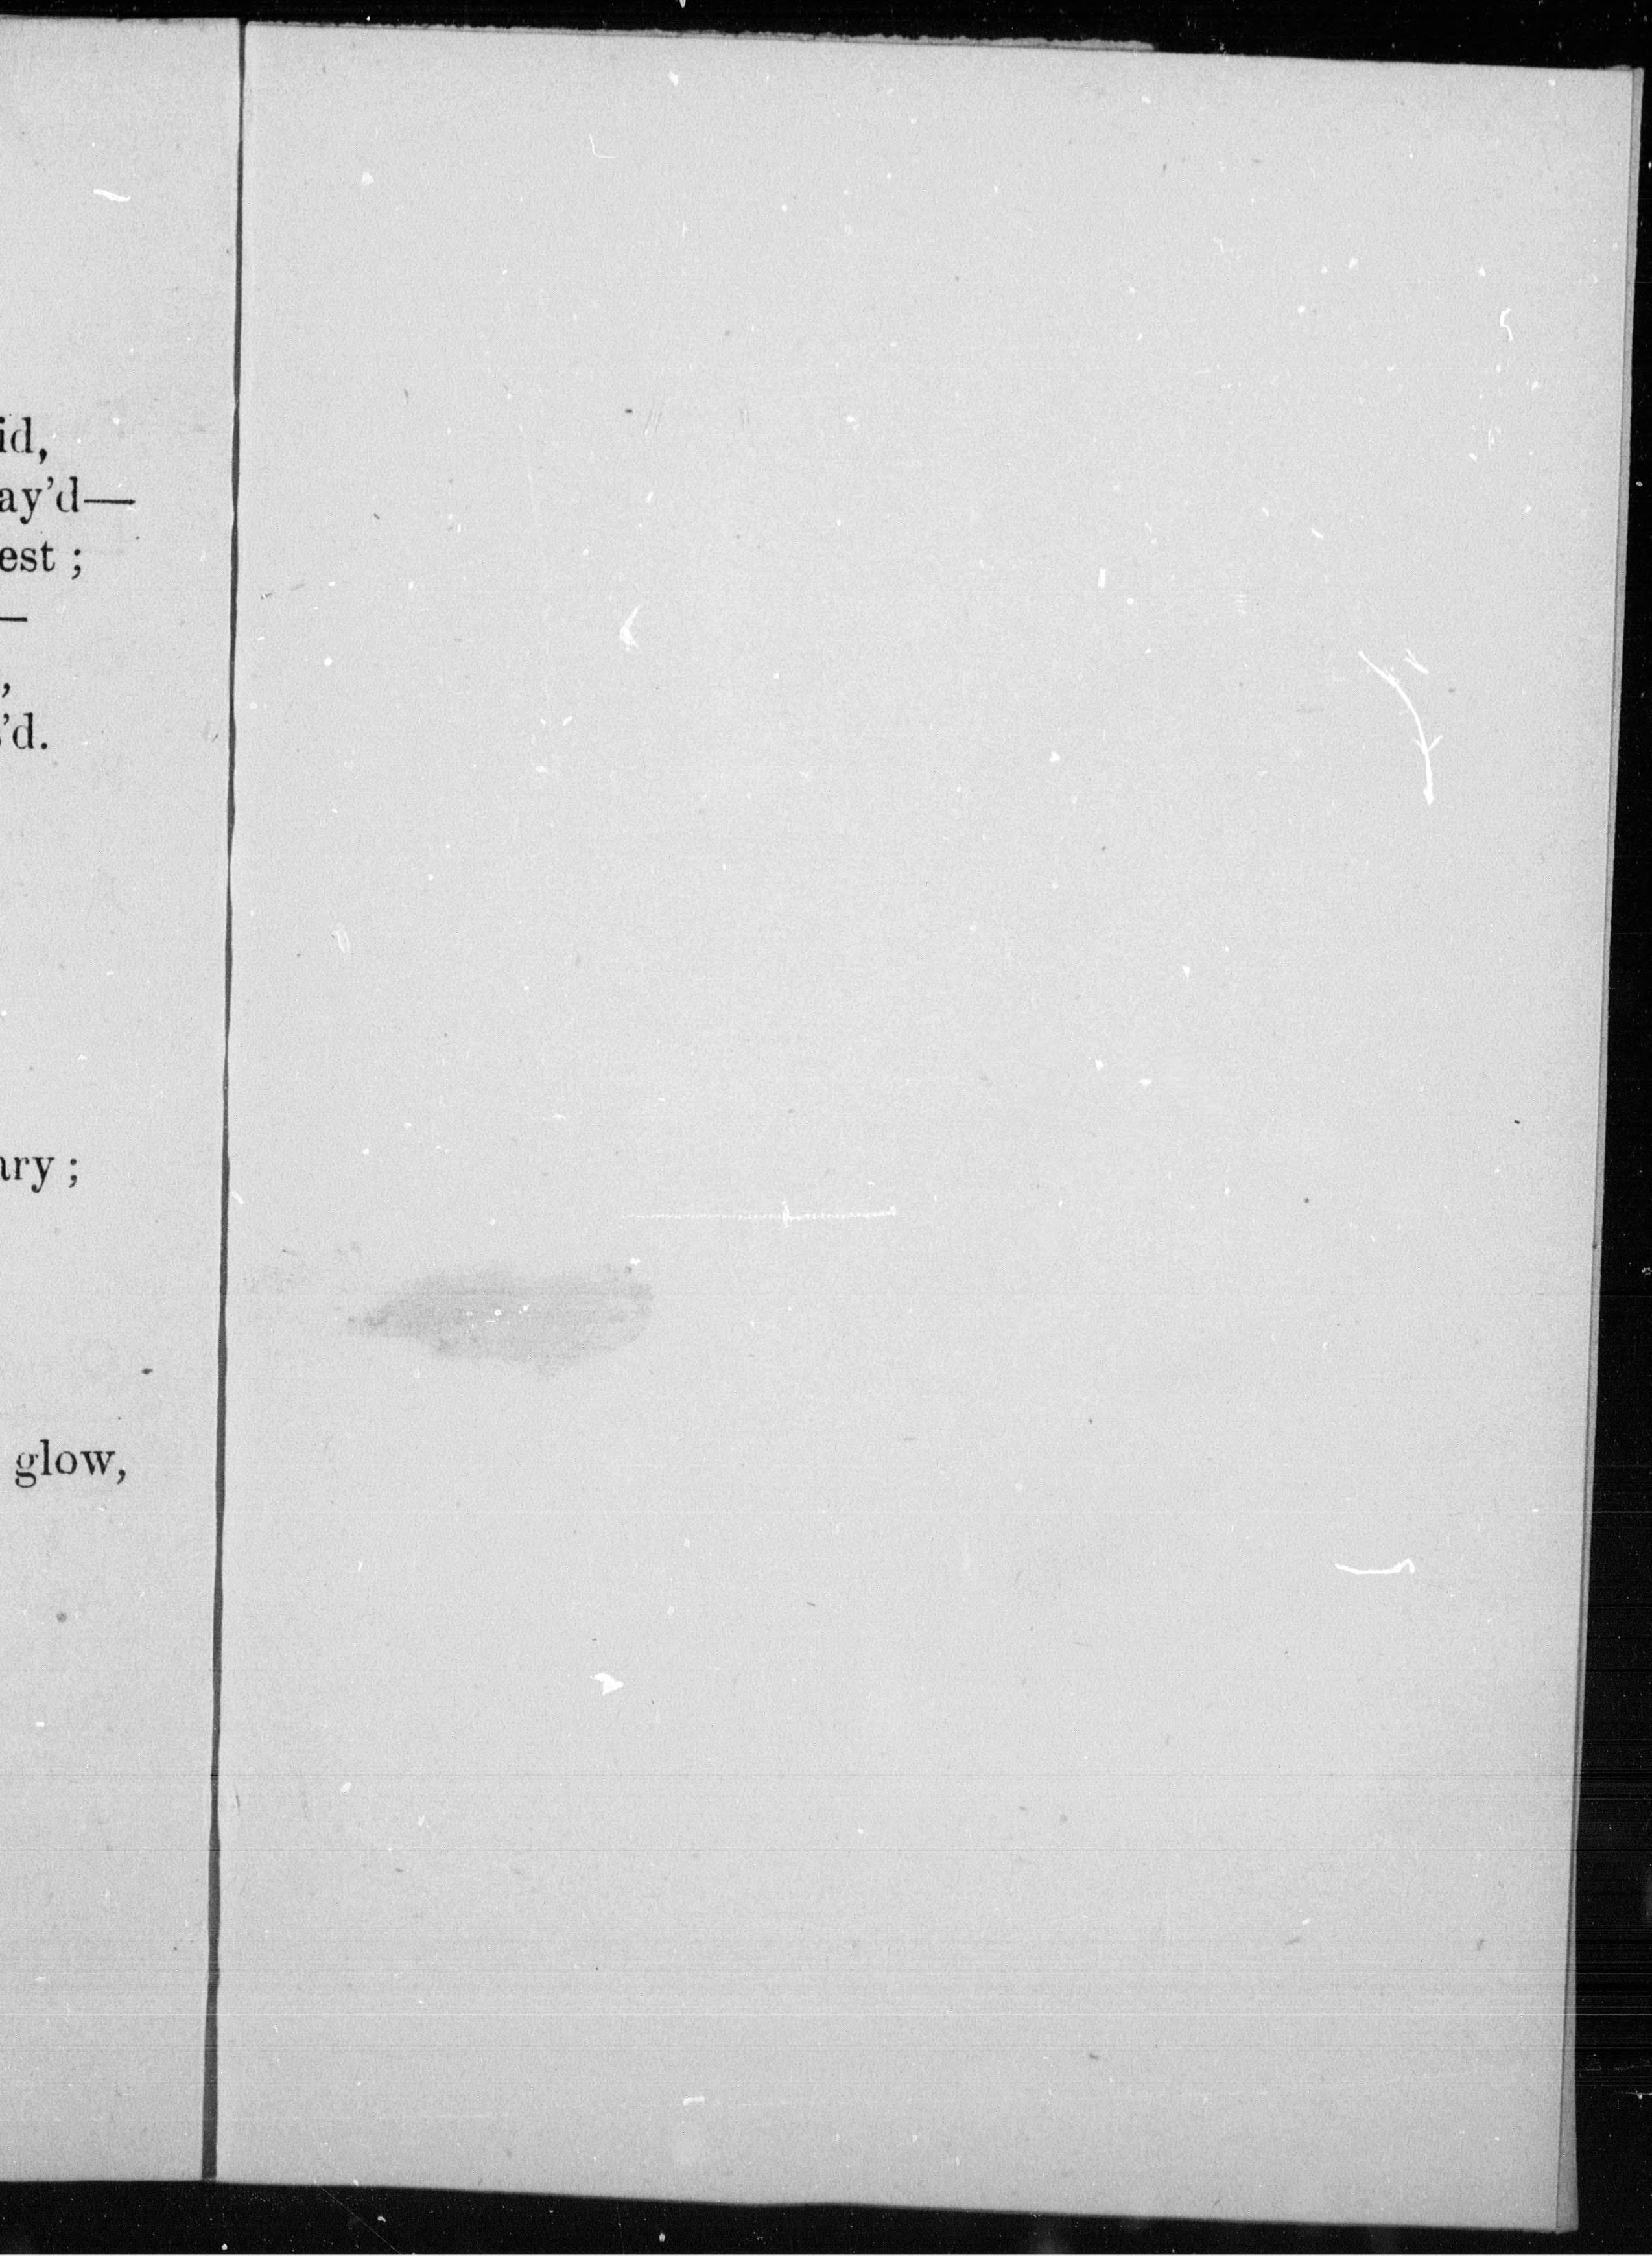 id,
ay'd—
est ;
—
,
'd.
ry ;
glow,